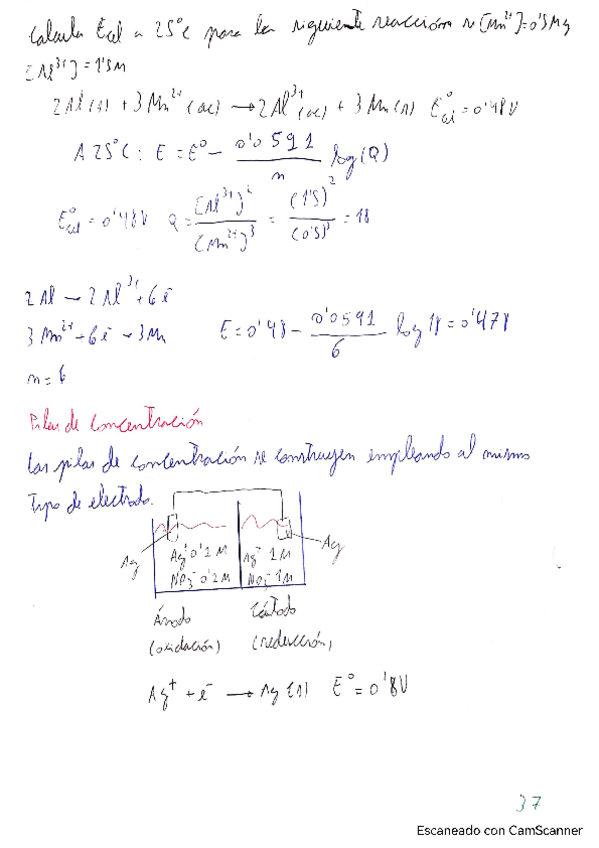 Calcula Ecel a 25°C para la siguiente reacción si [Mn²⁺]=0'5M y
[Al³⁺]=1'5M
2Al(s) + 3Mn²⁺(ac) → 2Al³⁺(ac) + 3Mn(s) E°cel = 0'48V
A 25°C: E = E° - 0'0591/n log(Q)
E°cel = 0'48V Q = [Al³⁺]²/[Mn²⁺]³ = (1'5)²/(0'5)³ = 18
2Al → 2Al³⁺ + 6e⁻
3Mn²⁺ + 6e⁻ → 3Mn E = 0'48 - 0'0591/6 log 18 = 0'478
n = 6
Pilas de concentración
Las pilas de concentración se construyen empleando el mismo
tipo de electrodo.
Ag Ag
Ag⁺ 0'1M Ag⁺ 1M
NO₃⁻ 0'1M NO₃⁻ 1M
Ánodo Cátodo
(oxidación) (reducción)
Ag⁺ + e⁻ → Ag(s) E° = 0'8V
37
Escaneado con CamScanner